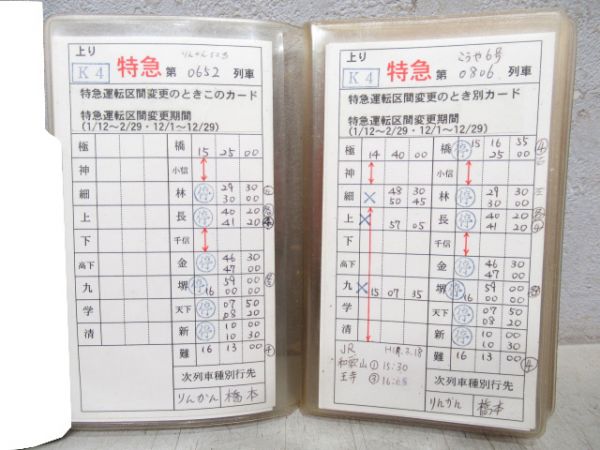 上り
りんかん52号
K4 特急 第 0652 列車
特急運転区間変更のときこのカード
特急運転区間変更期間
(1/12～2/29・12/1～12/29)
極 橋 15 25 00
神 小信
細 林 停 29 30
30 00
上 長 停 40 20
41 20
下 千信
高下 金 停 46 30
47 00
九 堺 停 59 00
16 00 00
学 天下 停 07 50
08 20
清 新 停 10 00
10 30
難 16 13 00
次列車種別行先
りんかん 橋本
上り
こうや6号
K4 特急 第 0806 列車
特急運転区間変更のとき別カード
特急運転区間変更期間
(1/12～2/29・12/1～12/29)
極 14 40 00 橋 停 15 16 55
25 00
神 小信
細 48 30 林 停 29 30
50 45 30 00
上 57 05 長 停 40 20
41 20
下 千信
高下 金 停 46 30
47 00
九 15 07 35 堺 停 59 00
16 00 00
学 天下 停 07 50
08 20
清 新 停 10 00
10 30
難 16 13 00
JR
和歌山 ① 15:30
王寺
次列車種別行先
りんかん 橋本